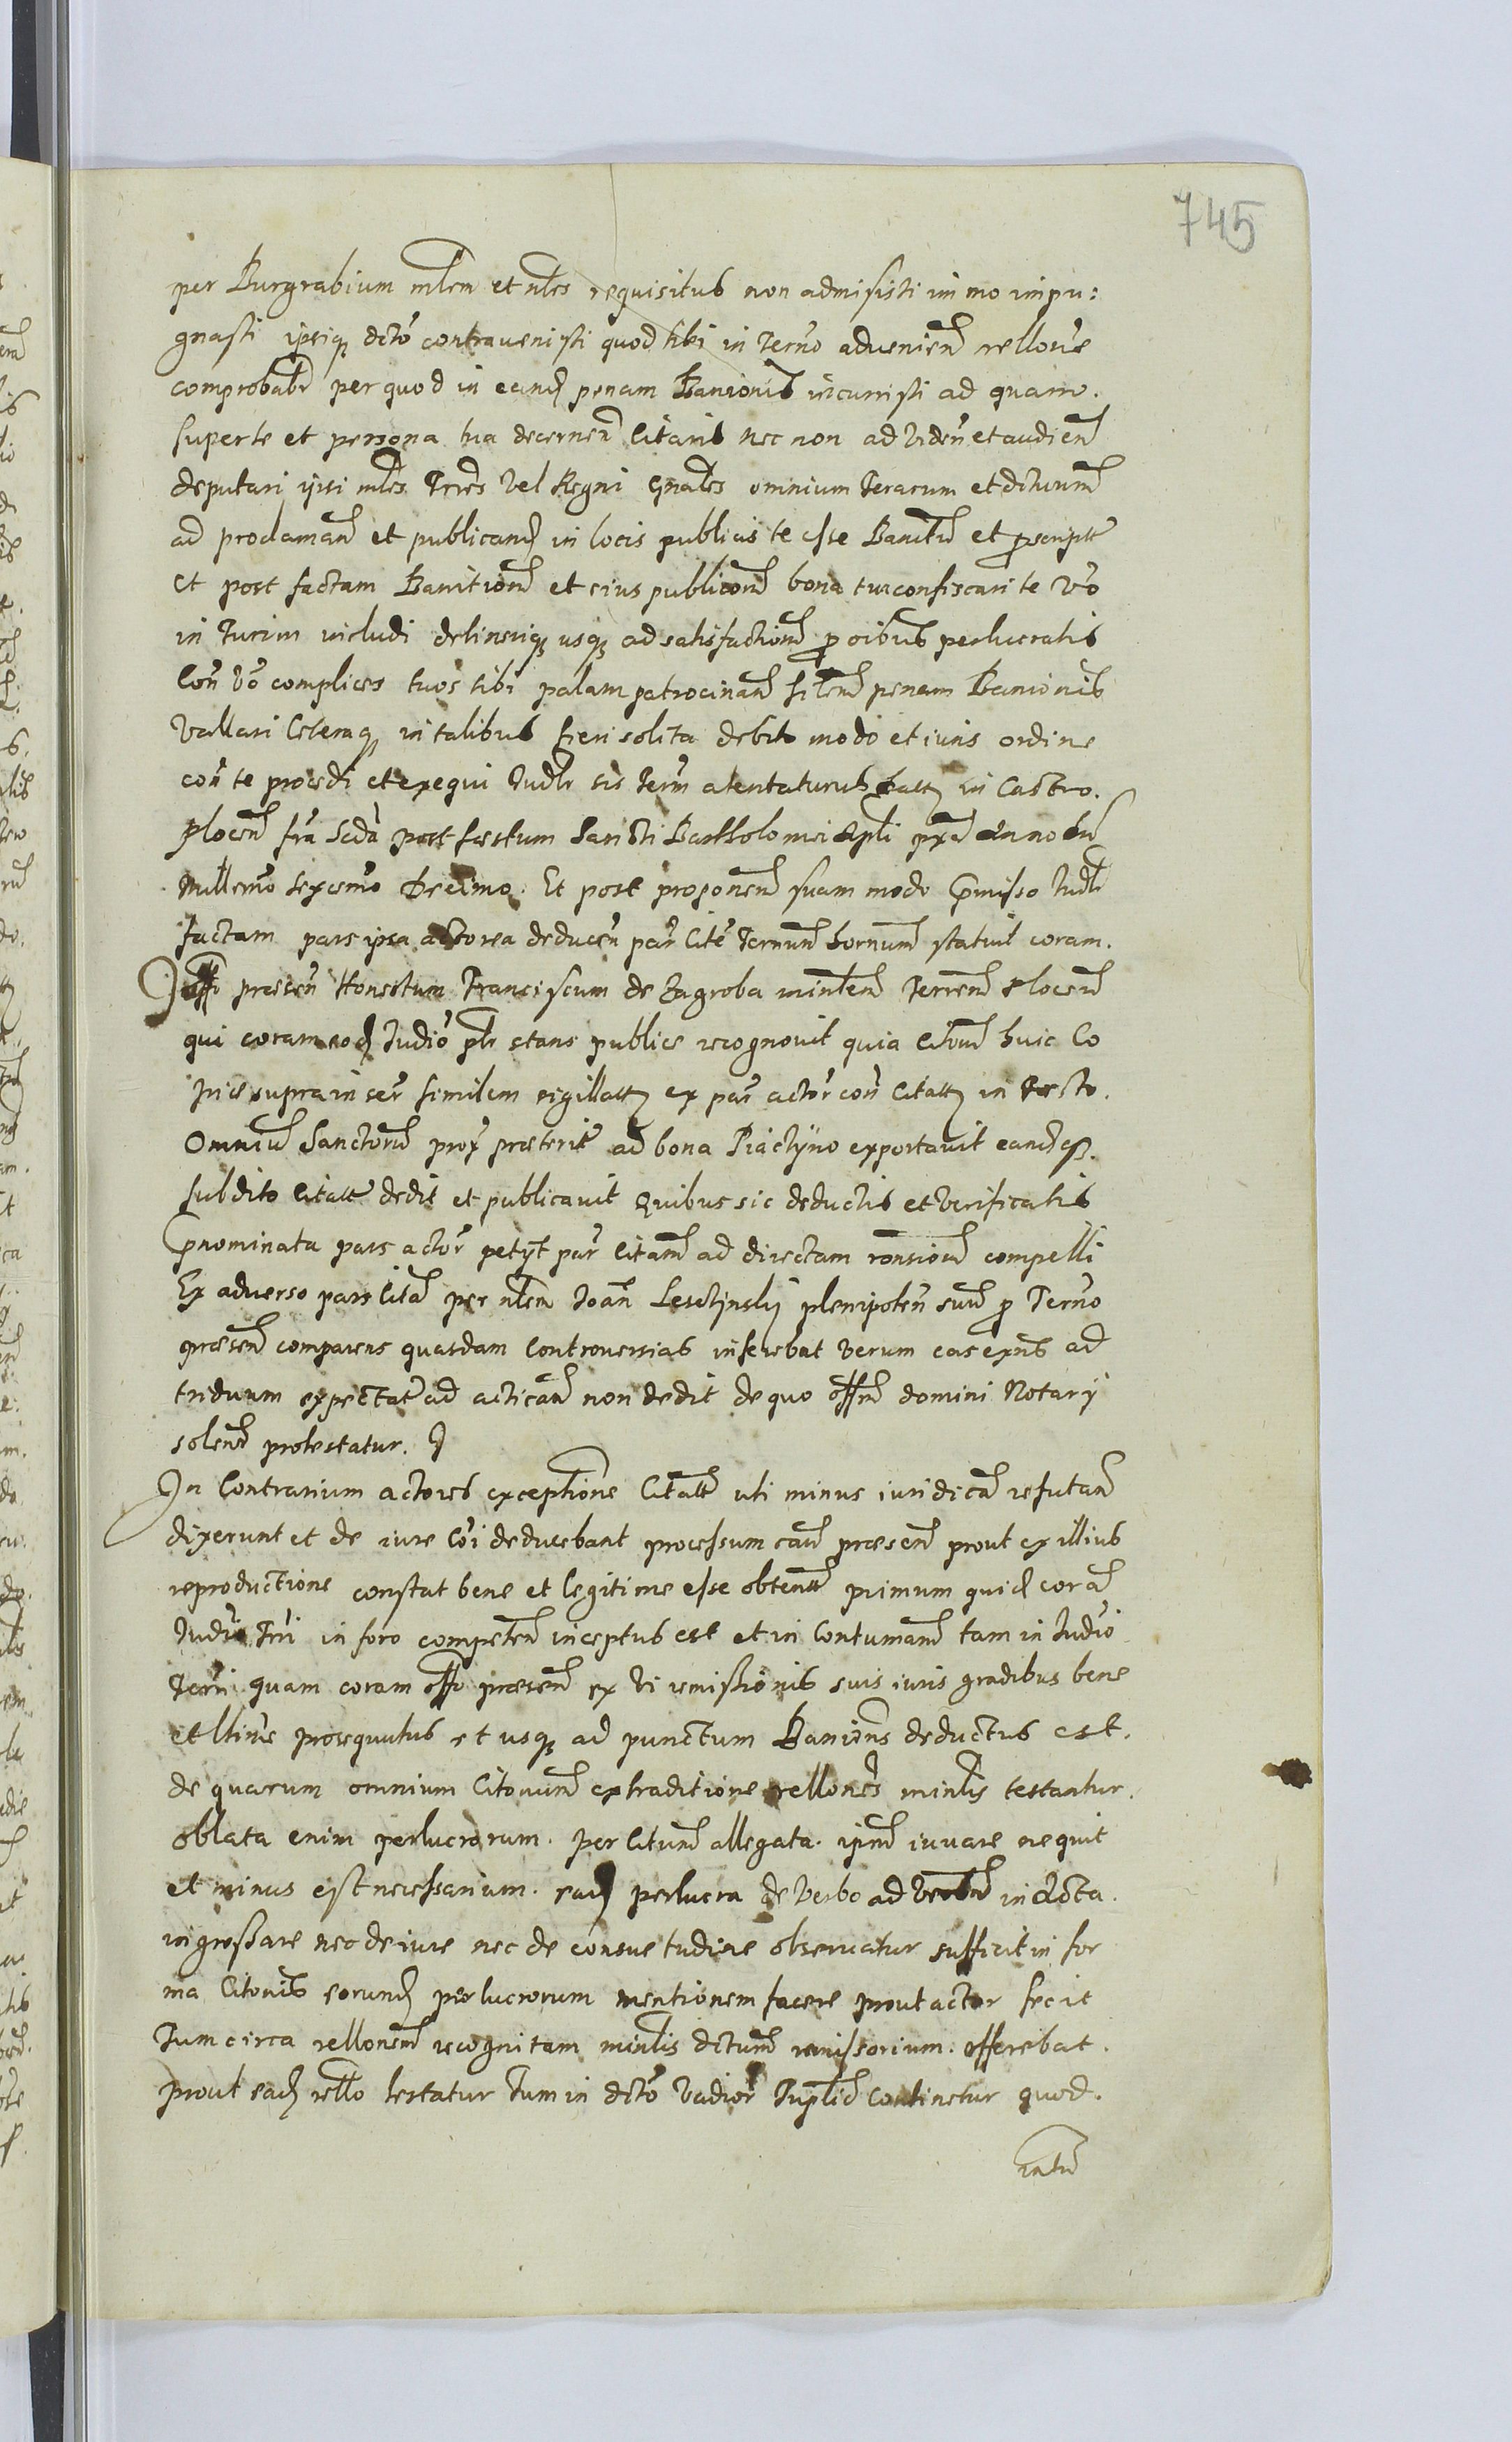 745
per Burgrabium mlem et nles requisitus non admisisti immo impu:
gnasti ipsiq dcto contravenisti quod tibi in Terno advenien rellone
comprobabr per quod in eand penam Banionis incurristi ad quam.
super te et persona tua decernen Citaris nec non ad viden et audien
deputari ipsi mles Trres vel Regni Gnales omnium Terarum et dituum
ad proclaman et publicand in locis publicis te esse Banitu et proscript
et post factam Banitionem et eius publicom bona tua confiscari te vo
in Turim includi detineriq usq ad satisfactionem p oibus perlucratis
Con vo complices tuos tibi palam patrocinan silem penam Banionis
Vallari Ceteraq in talibus fieri solita debito modo et iuris ordine
con te procedi et exequi Iudlr sis term atentaturus Datt in Castro.
Plocen fra Scda post festum Sancti Bartholomei Apli pxa Anno Dni
Millemo Sexcemo Decimo. Et post proponem suam modo pmisso Iudlr
factam pars ipsa actorea deducen par Cite Ternum hornum statuit coram.
Offo praesen Honestum Franciscum de Zagroba minlem Terrem Plocen
qui coram eod Iudio plr stans publice recognovit quia Citom huic Co
pice supra inser similem sigillatt ex par actor con Citatt in Festo.
Omniu Sanctoru prox praeterit ad bona Piactyno exportavit eandq.
subdito Citatt dedit et publicavit Quibus sic deductis et verificatis
pnominata pars actor petijt par Citam ad directam ronsionem compelli
Ex adverso pars Cita per nlem Ioan Lesctynsky plenipoten suu p Terno
praesen comparens quasdam Controversias inferebat verum eas exnts ad
triduum expectat ad actican non dedit de quo offm domini Notarij
solenr protestatur.
In Contrarium actores exceptione Citatt uti minus iuridica refutan
dixerunt et de iure coi deducebant processum cau praesen prout ex illius
reproductione constat bene et legitime esse obtent primum quid coram
Iudio Trri in foro competen inceptus est et in Contuman tam in Iudio
Terri quam coram offo praesen ex vi remissionis suis iuris gradibus bene
et ltime prosequutus et usq ad punctum Banions deductus est.
de quarum omnium Citonum extraditione rellones minlis testantur.
oblata enim perlucrorum. per Citum allegata. ipsum iuvare nequit
et minus est necessarium. ead perlucra de verbo ad verbu in Acta.
ingrossare nec de iure nec de consuetudine observatur sufficit in for
ma Citonis eorund perlucrorum mentionem facere prout actor fecit
Tum circa rellonem recognitam minlis dctum remissorium. offerebat.
prout ead rello testatur Tum in dcto vadior Tuplici continetur quod.